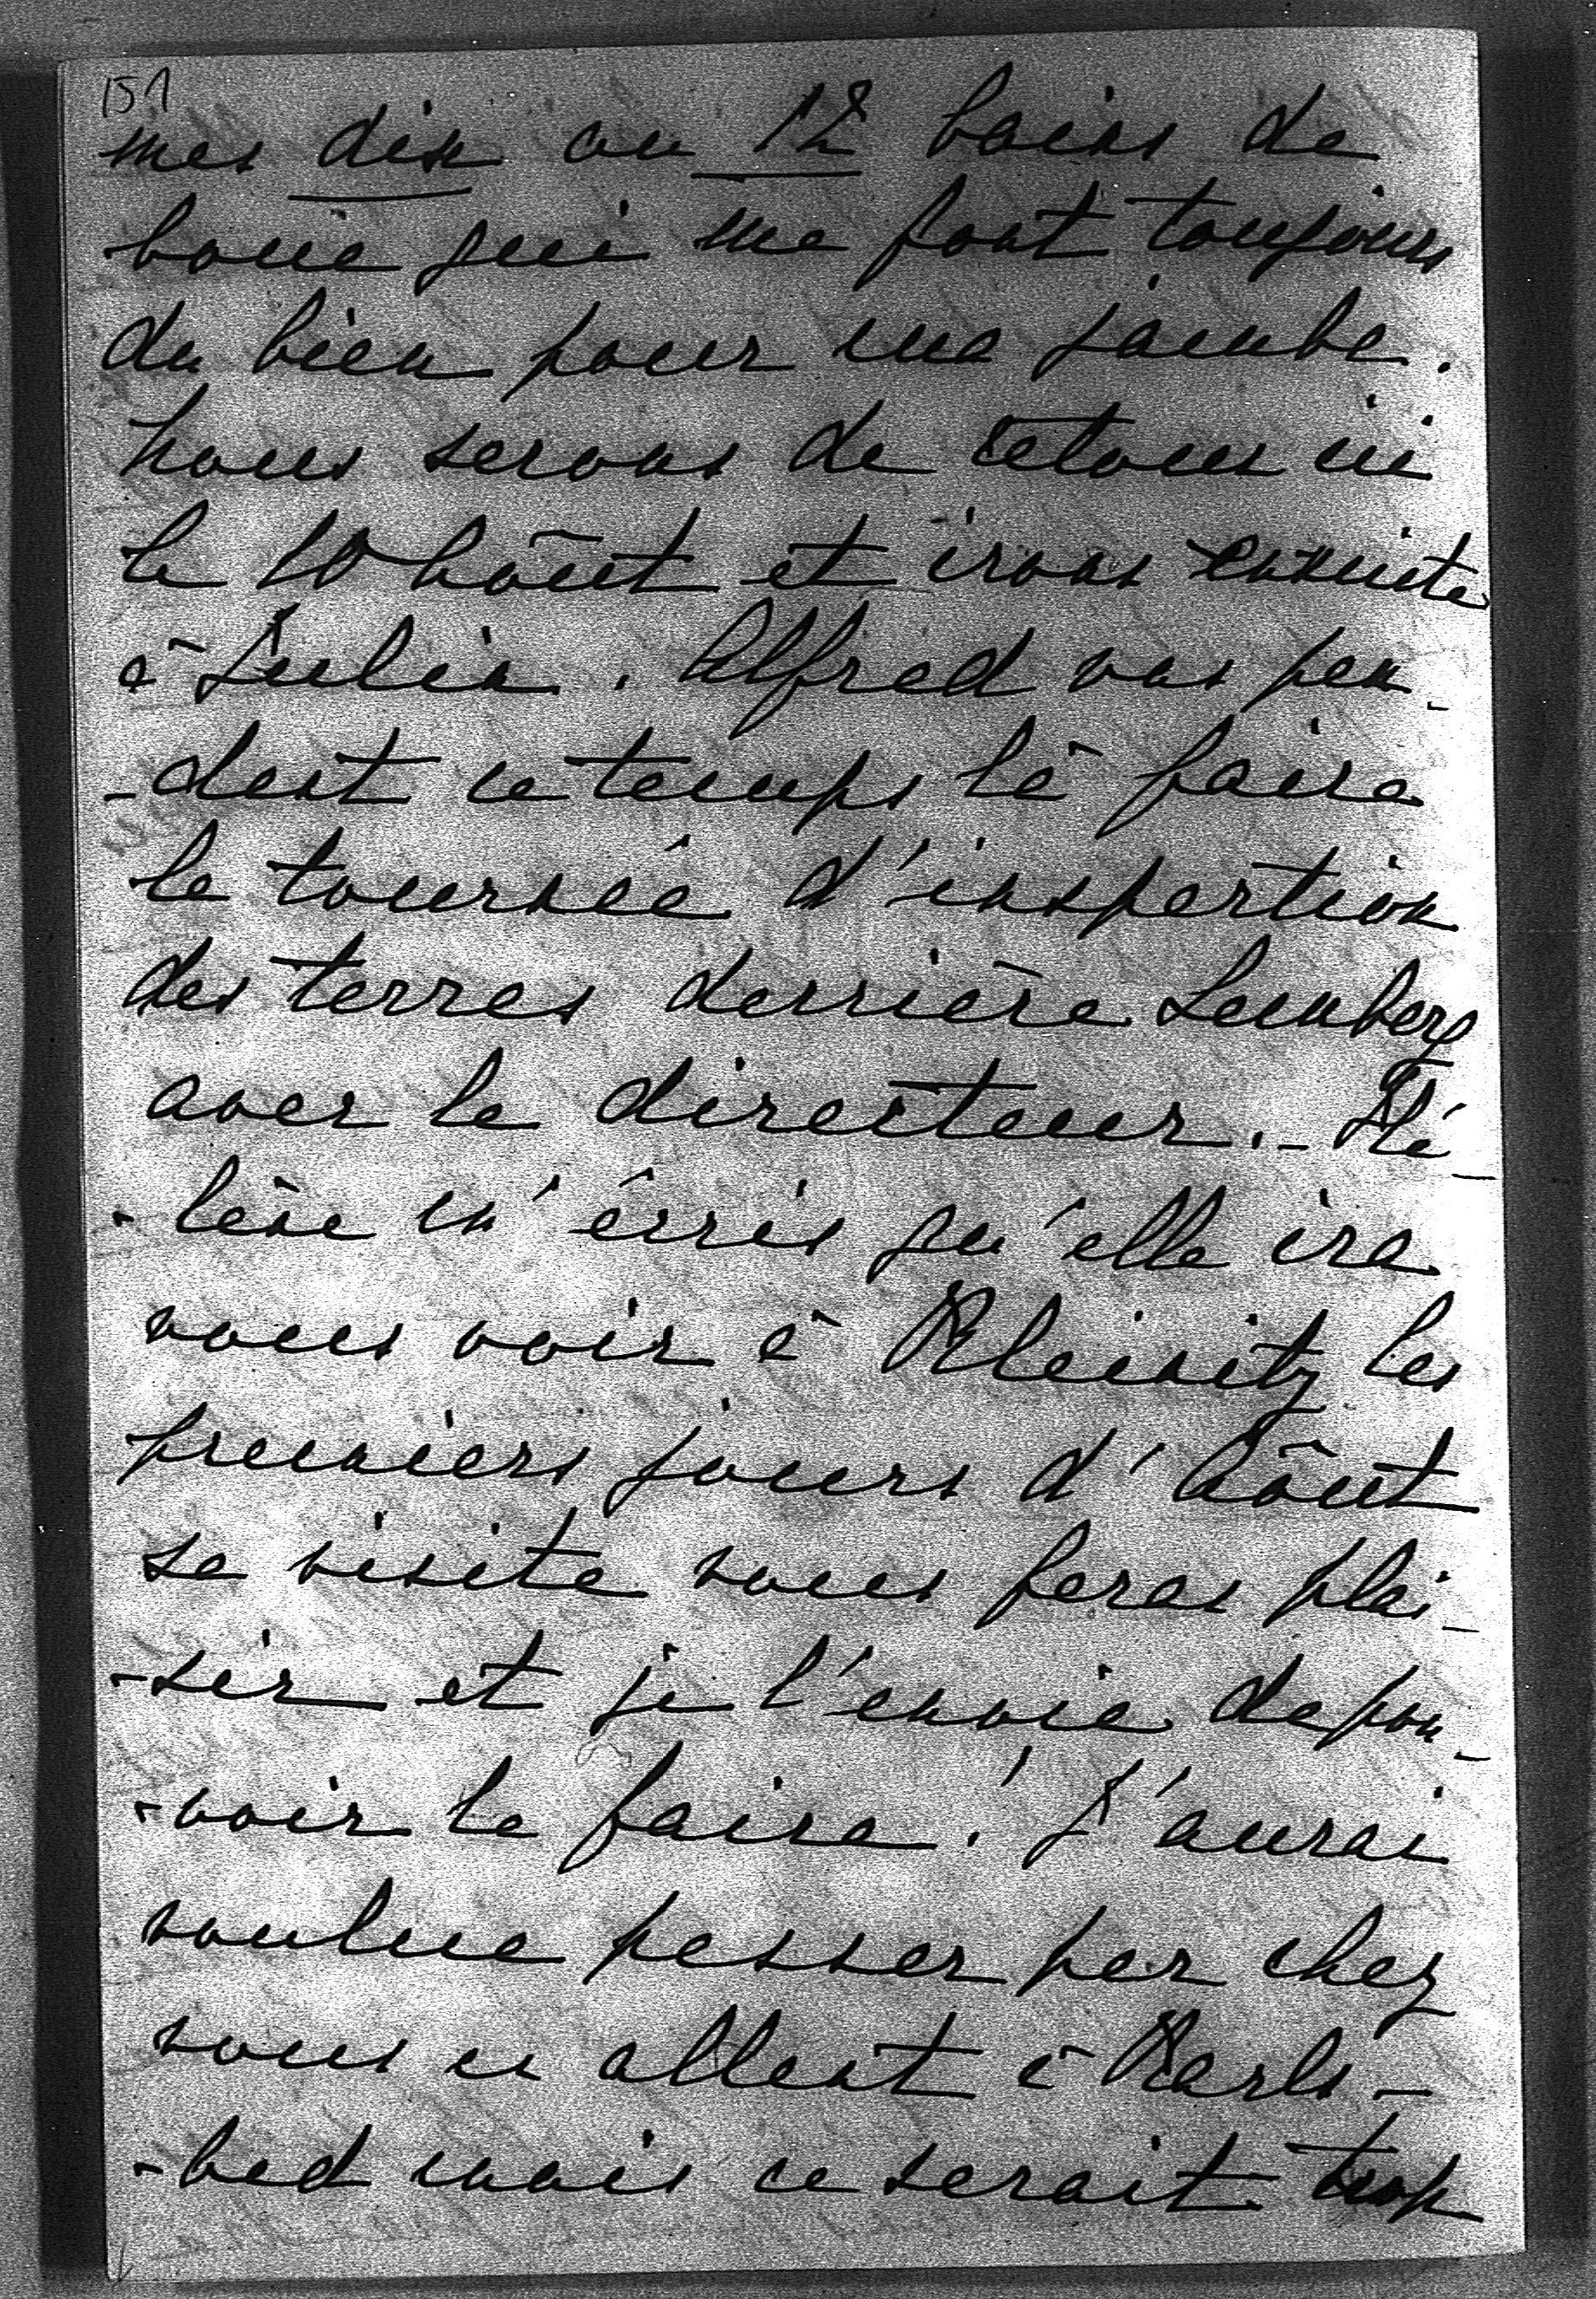 151
mes dix ou 12 bains de
boue qui me font toujours
du bien pour ma jambe.
Nous serons de retour ici
le 10 Aôut et irons ensuite
à Julin. Alfred vas pen-
-dant ce temps là faire
la tournée d'inspection
des terres derrière Lemberg
avec le directeur. - Hé-
-lène m'écris qu'elle ira
vous voir à Kleinitz les
premiers jours d'Aôut
sa visite vous feras plai-
-sir et je l'envie de pou-
-voir le faire! J'aurai
voulue passer par chez
vous en allant à Karls-
-bad mais ce serait trop